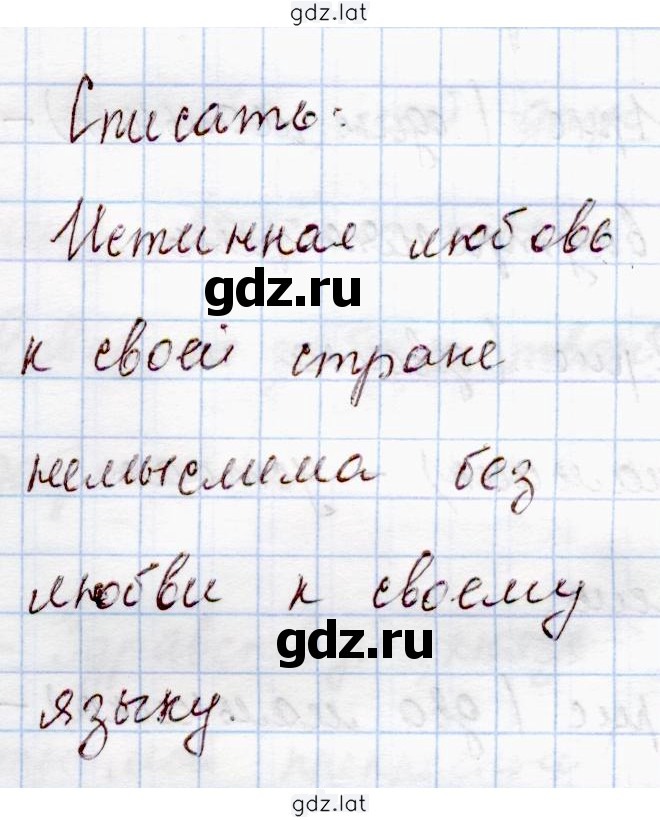 gdz.lat
Списать:
Истинная любовь
gdz.ru
к своей стране
немыслима без
любви к своему
gdz.ru
языку.
gdz.lat